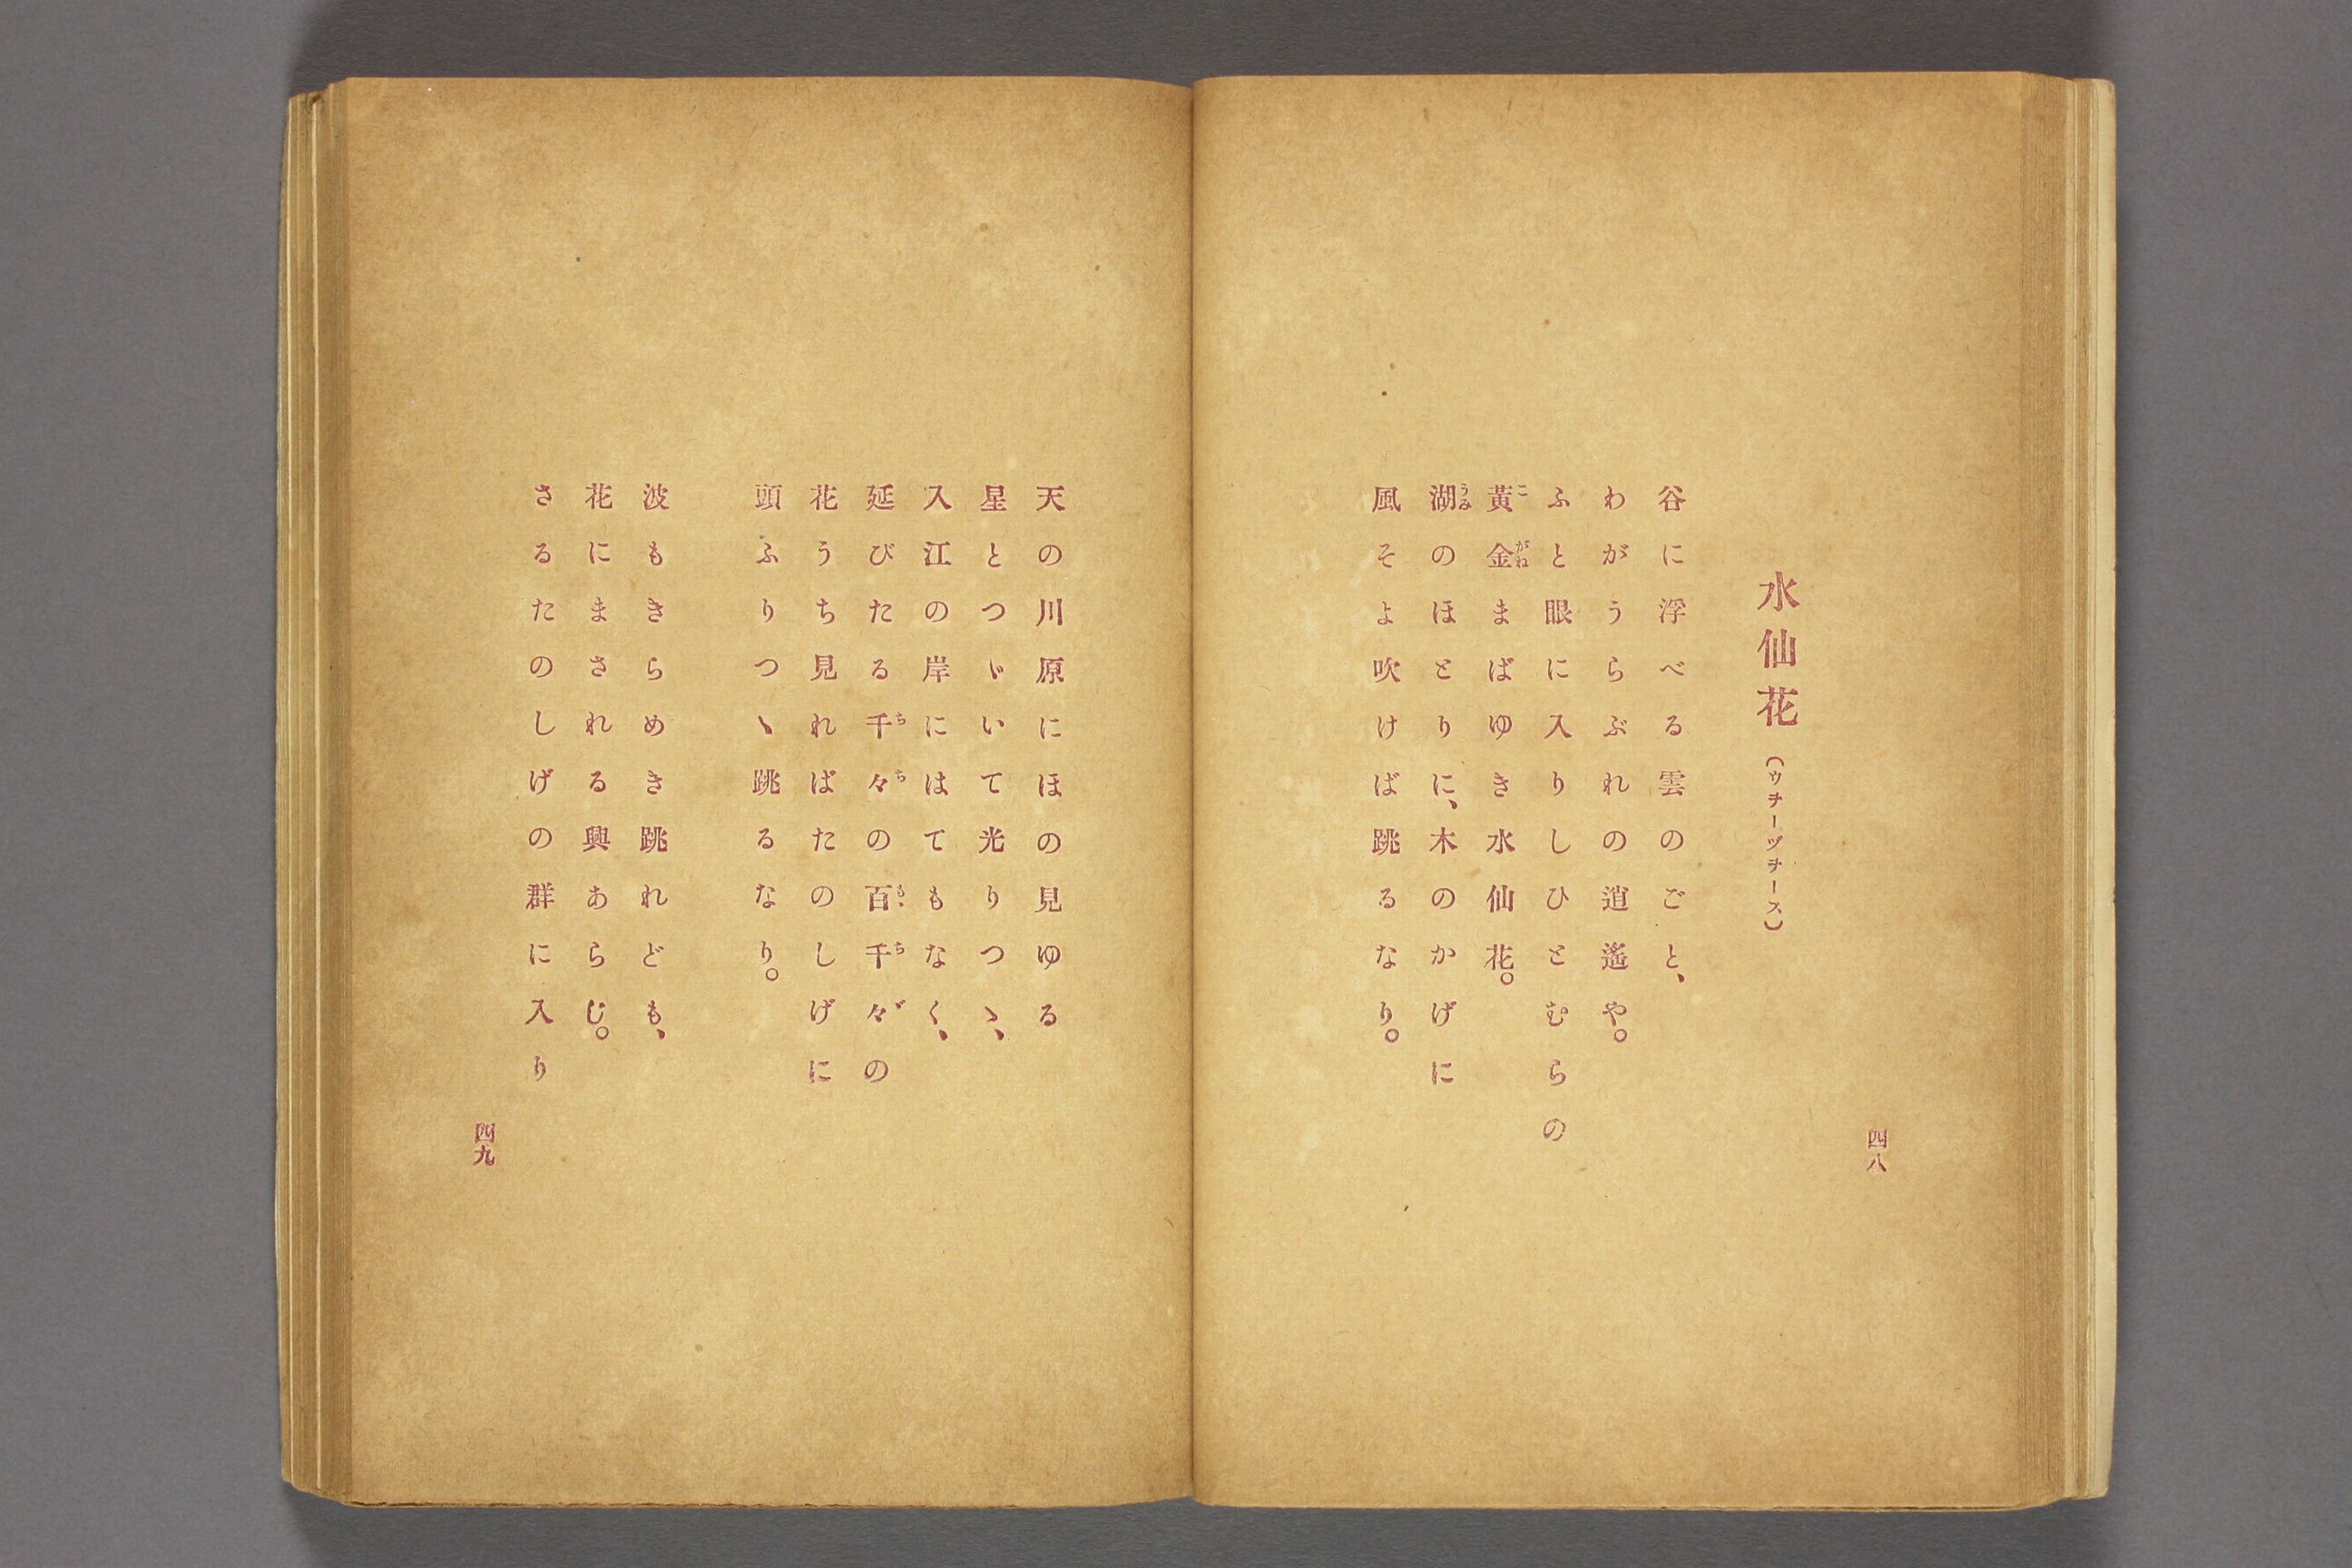 四八
水仙花(ウヲーヅヲース)
谷に浮べる雲のごと、
わがうらぶれの逍遙や。
ふと眼に入りしひとむらの
黃金まばゆき水仙花。
湖のほとりに、木のかげに
風そよ吹けば跳るなり。
天の川原にほの見ゆる
星とつゞいて光りつゝ、
入江の岸にはてもなく、
延びたる千々の百千々の
花うち見ればたのしげに
頭ふりつゝ跳るなり。
波もきらめき跳れども、
花にまされる興あらじ。
さるたのしげの群に入り
四九